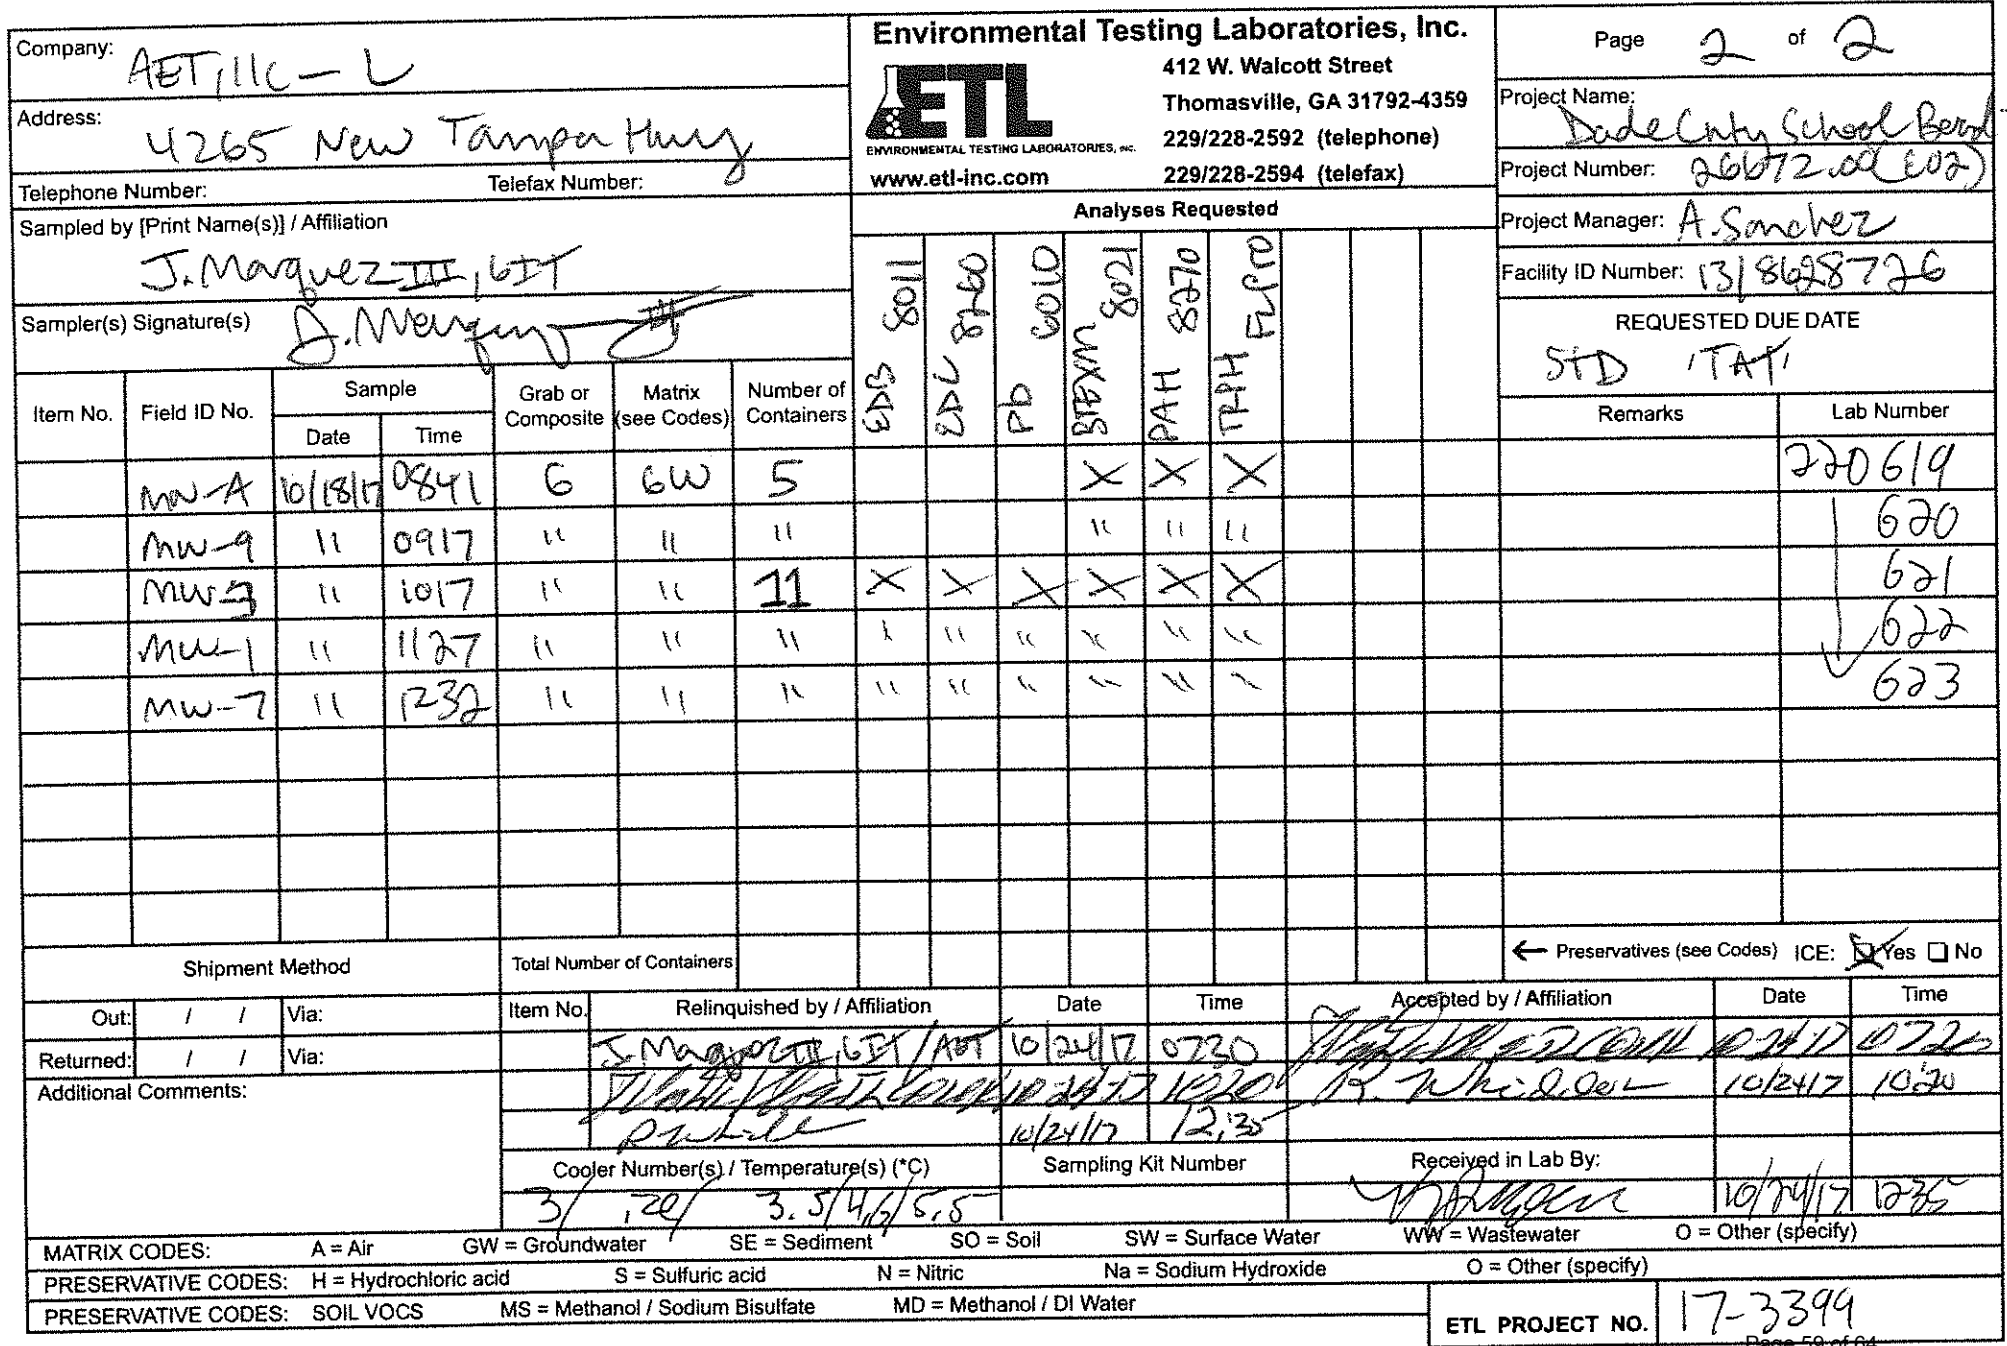 Company: AET, llc - L
Address: 4265 New Tampa Hwy
Telephone Number: Telefax Number:
Sampled by [Print Name(s)] / Affiliation
J. Marquez III, GIT
Sampler(s) Signature(s) J. Marquez III
Environmental Testing Laboratories, Inc.
ETL
ENVIRONMENTAL TESTING LABORATORIES, INC.
www.etl-inc.com
412 W. Walcott Street
Thomasville, GA 31792-4359
229/228-2592 (telephone)
229/228-2594 (telefax)
Page 2 of 2
Project Name: Dade Cnty School Board
Project Number: 26672.00 (E02)
Project Manager: A. Sanchez
Facility ID Number: 13/8628726
REQUESTED DUE DATE
STD TAT
Analyses Requested
EDB 8011
EDC 8260
Pb 6010
BTEXM 8021
PAH 8270
TRPH FLPRO
Item No. Field ID No. Sample Date Time Grab or Composite Matrix (see Codes) Number of Containers Remarks Lab Number
MW-A 10/18/17 0841 G GW 5 X X X 220619
MW-9 " 0917 " " " " " " 620
MW-3 " 1017 " " 11 X X X X X X 621
MW-1 " 1127 " " " " " " " " " 622
MW-7 " 1232 " " " " " " " " " 623
Shipment Method Total Number of Containers ← Preservatives (see Codes) ICE: Yes No
Out: / / Via:
Returned: / / Via:
Additional Comments:
Item No. Relinquished by / Affiliation Date Time Accepted by / Affiliation Date Time
J. Marquez III, GIT / AET 10/24/17 0730 10-24-17
10-24-17 1020 R. Whiddon 10/24/17 1020
10/24/17 12:35
Cooler Number(s) / Temperature(s) (°C) Sampling Kit Number Received in Lab By:
3.5/4.6/5.5 10/24/17 1235
MATRIX CODES: A = Air GW = Groundwater SE = Sediment SO = Soil SW = Surface Water WW = Wastewater O = Other (specify)
PRESERVATIVE CODES: H = Hydrochloric acid S = Sulfuric acid N = Nitric Na = Sodium Hydroxide O = Other (specify)
PRESERVATIVE CODES: SOIL VOCS MS = Methanol / Sodium Bisulfate MD = Methanol / DI Water
ETL PROJECT NO. 17-3399
Page 59 of 64